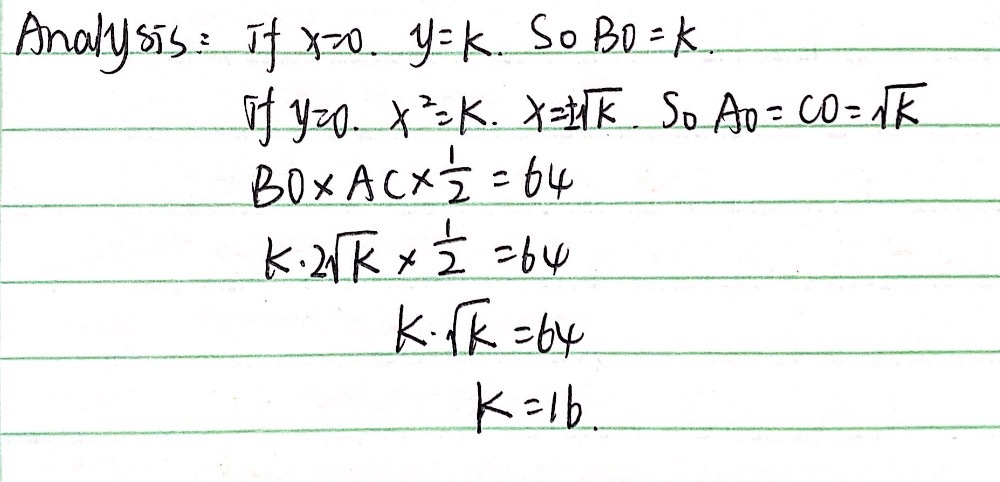 Analysis: if x=0. y=k. So BO=k.
if y=0. x²=k. x=±√k. So AO=CO=√k
BO×AC×1/2=64
k·2√k×1/2=64
k·√k=64
k=16.